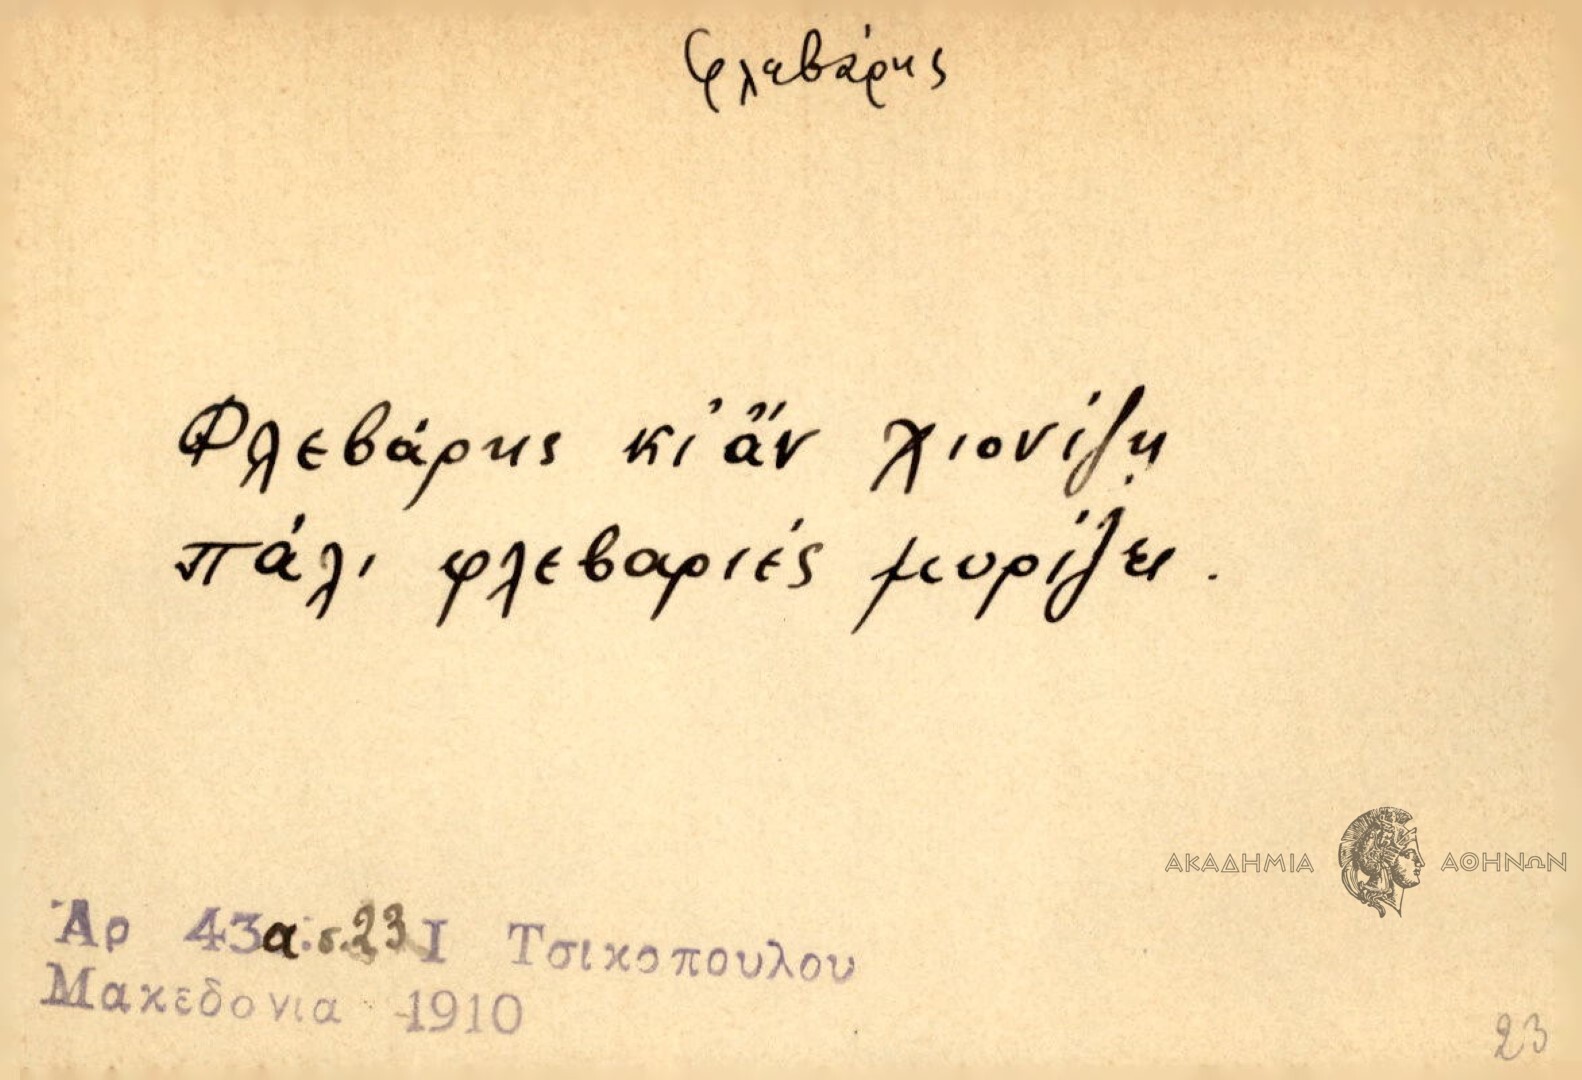 Φλεβάρης
Φλεβάρης κι᾿ ἄν χιονίζῃ
πάλι φλεβαριές μυρίζει.
ΑΚΑΔΗΜΙΑ ΑΘΗΝΩΝ
Ἀρ 43α:σ.23 Ι Τσικοπουλου
Μακεδονια 1910
23